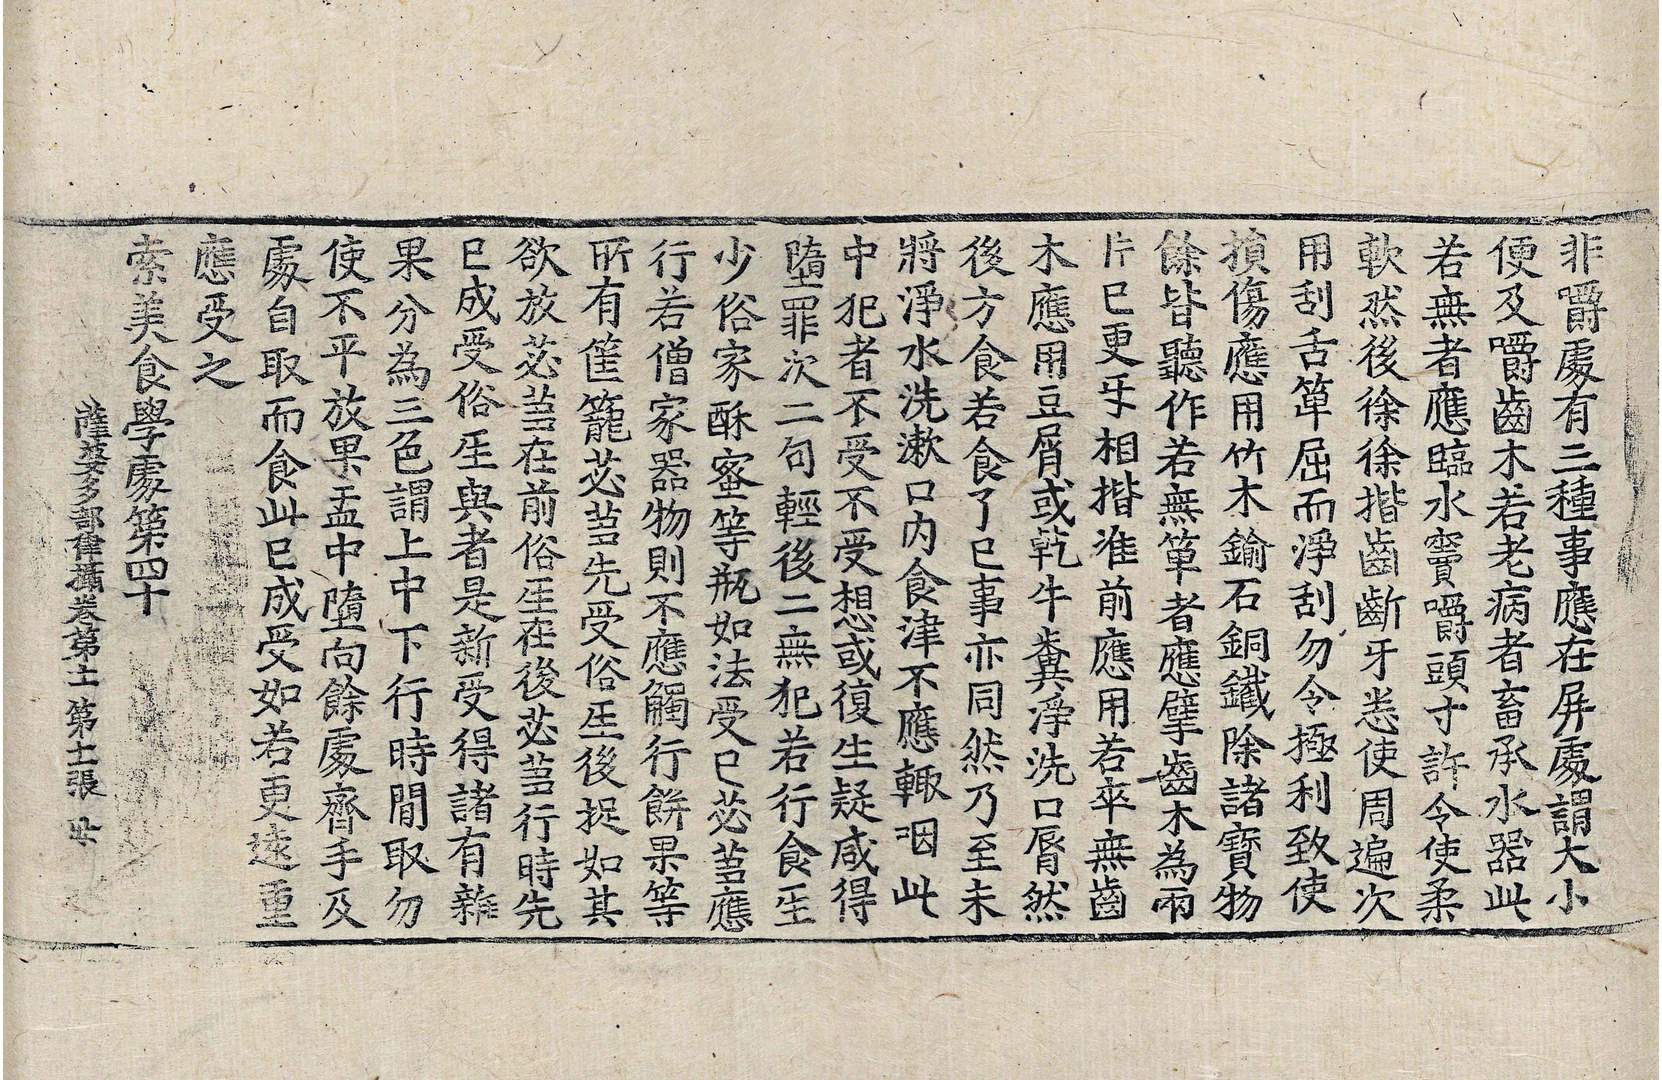 非嚼處有三種事應在屏處謂大小
便及嚼齒木若老病者畜承水器此
若無者應臨水竇嚼頭寸許令使柔
軟然後徐徐揩齒齗牙悉使周遍次
用刮舌箄屈而淨刮勿令極利致使
損傷應用竹木鍮石銅鐵除諸寶物
餘皆聽作若無箄者應擘齒木為兩
片已更牙相揩准前應用若卒無齒
木應用豆屑或乾牛糞淨洗口脣然
後方食若食了已事亦同然乃至未
將淨水洗漱口內食津不應輙咽此
中犯者不受不受想或復生疑咸得
墮罪次二句輕後二無犯若行食生
少俗家酥蜜等瓶如法受已苾芻應
行若僧家器物則不應觸行餅果等
所有筐籠苾芻先受俗生後捉如其
欲放苾芻在前俗生在後苾芻行時先
已成受俗生與者是新受得諸有雜
果分為三色謂上中下行時閒取勿
使不平放果盂中墮向餘處齊手及
處自取而食此已成受如若更遠重
應受之
索美食學處第四十
薩婆多部律攝卷第十一 第十一張 卋